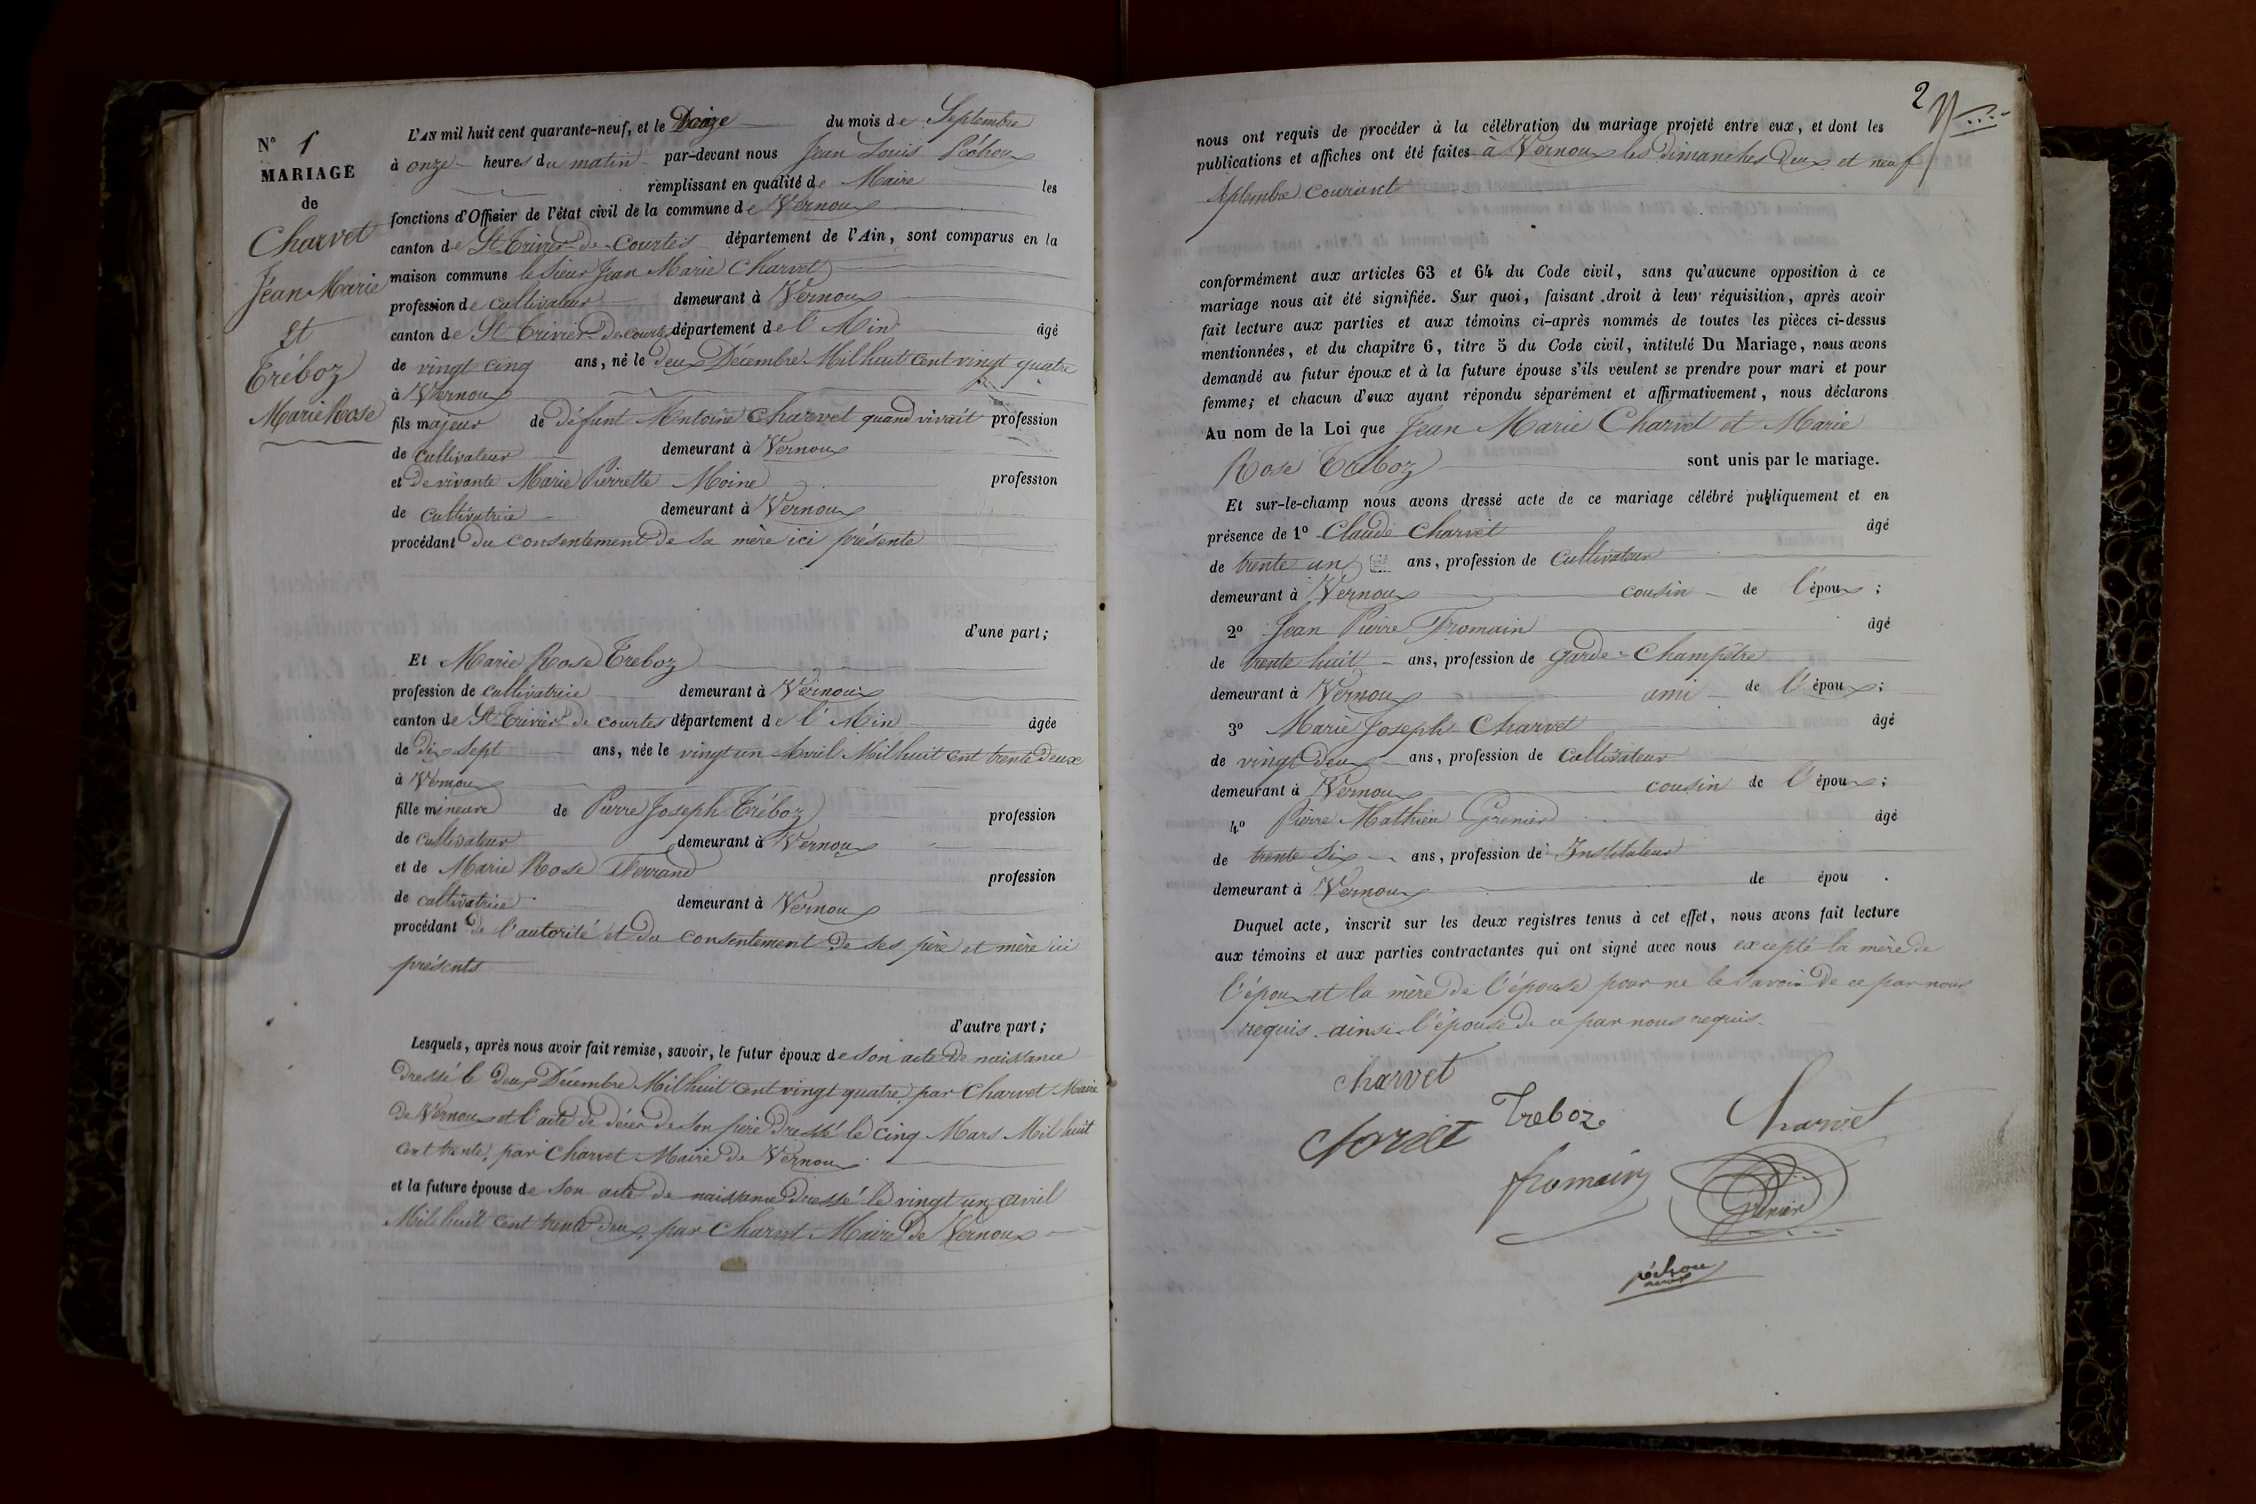 N° 1
MARIAGE
de
Charvet
Jéan Marie
Et
Tréboz
Marie Rose
L'AN mil huit cent quarante-neuf, et le du mois de Septembre
à onze heures du matin par-devant nous Jean Louis Péchoux
remplissant en qualité de Maire les
fonctions d'Officier de l'état civil de la commune de Vernoux
canton de St Trivier de Courtes département de l'Ain, sont comparus en la
maison commune le sieur Jean Marie Charvet
profession de cultivateur demeurant à Vernoux
canton de St Trivier de Courtes département de l'Ain âgé
de vingt cinq ans, né le deux Décembre Mil huit cent vingt quatre
à Vernoux
fils majeur de défunt Antoine Charvet quand vivait profession
de cultivateur demeurant à Vernoux
et de vivante Marie Pierrette Moine profession
de cultivatrice demeurant à Vernoux
procédant du consentement de sa mère ici présente
d'une part;
Et Marie Rose Treboz
profession de cultivatrice demeurant à Vernoux
canton de St Trivier de Courtes département de l'Ain âgée
de dix sept ans, née le vingt un Avril Mil huit cent trente deux
à Vernoux
fille mineure de Pierre Joseph Tréboz profession
de cultivateur demeurant à Vernoux
et de Marie Rose Ferrand profession
de cultivatrice demeurant à Vernoux
procédant de l'autorité et du consentement de ses père et mère ici
présents
d'autre part;
Lesquels, après nous avoir fait remise, savoir, le futur époux de son acte de naissance
dressé le deux Décembre Mil huit cent vingt quatre par Charvet Maire
de Vernoux et l'acte de décès de son père dressé le cinq Mars Mil huit
cent trente, par Charvet Maire de Vernoux
et la future épouse de son acte de naissance dressé le vingt un avril
Mil huit cent trente deux, par Charvet Maire de Vernoux
2
nous ont requis de procéder à la célébration du mariage projeté entre eux, et dont les
publications et affiches ont été faites à Vernoux les dimanches deux et neuf
Septembre courant
conformément aux articles 63 et 64 du Code civil, sans qu'aucune opposition à ce
mariage nous ait été signifiée. Sur quoi, faisant droit à leur réquisition, après avoir
fait lecture aux parties et aux témoins ci-après nommés de toutes les pièces ci-dessus
mentionnées, et du chapitre 6, titre 5 du Code civil, intitulé Du Mariage, nous avons
demandé au futur époux et à la future épouse s'ils veulent se prendre pour mari et pour
femme; et chacun d'eux ayant répondu séparément et affirmativement, nous déclarons
Au nom de la Loi que Jean Marie Charvet et Marie
Rose Treboz sont unis par le mariage.
Et sur-le-champ nous avons dressé acte de ce mariage célébré publiquement et en
présence de 1° Claude Charvet âgé
de trente un ans, profession de cultivateur
demeurant à Vernoux cousin de l'époux;
2° Jean Pierre Fromain âgé
de trente huit ans, profession de Garde-Champêtre
demeurant à Vernoux ami de l'époux;
3° Marie Joseph Charvet âgé
de vingt deux ans, profession de cultivateur
demeurant à Vernoux cousin de l'époux;
4° Pierre Mathieu Grenier âgé
de trente six ans, profession de Instituteur
demeurant à Vernoux de épou.
Duquel acte, inscrit sur les deux registres tenus à cet effet, nous avons fait lecture
aux témoins et aux parties contractantes qui ont signé avec nous excepté la mère de
l'époux et la mère de l'épouse pour ne le savoir de ce par nous
requis. ainsi l'épouse de ce par nous requis.
Charvet
Treboz
Charvet
Charvet
fromain
Grenier
péchoux